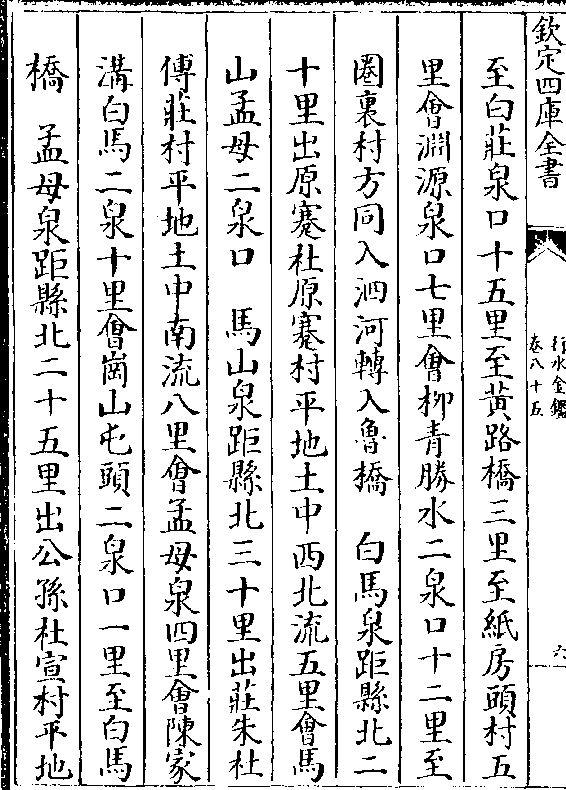 欽定四庫全書
行水金鑑
卷八十五
六
至白莊泉口十五里至黄路橋三里至紙房頭村五
里會淵源泉口七里會柳青勝水二泉口十二里至
圈裏村方同入泗河轉入魯橋　白馬泉距縣北二
十里出原蹇杜原蹇村平地土中西北流五里會馬
山孟母二泉口　馬山泉距縣北三十里出莊朱杜
傅莊村平地土中南流八里會孟母泉四里會陳家
溝白馬二泉十里會崗山屯頭二泉口一里至白馬
橋　孟母泉距縣北二十五里出公孫杜宣村平地